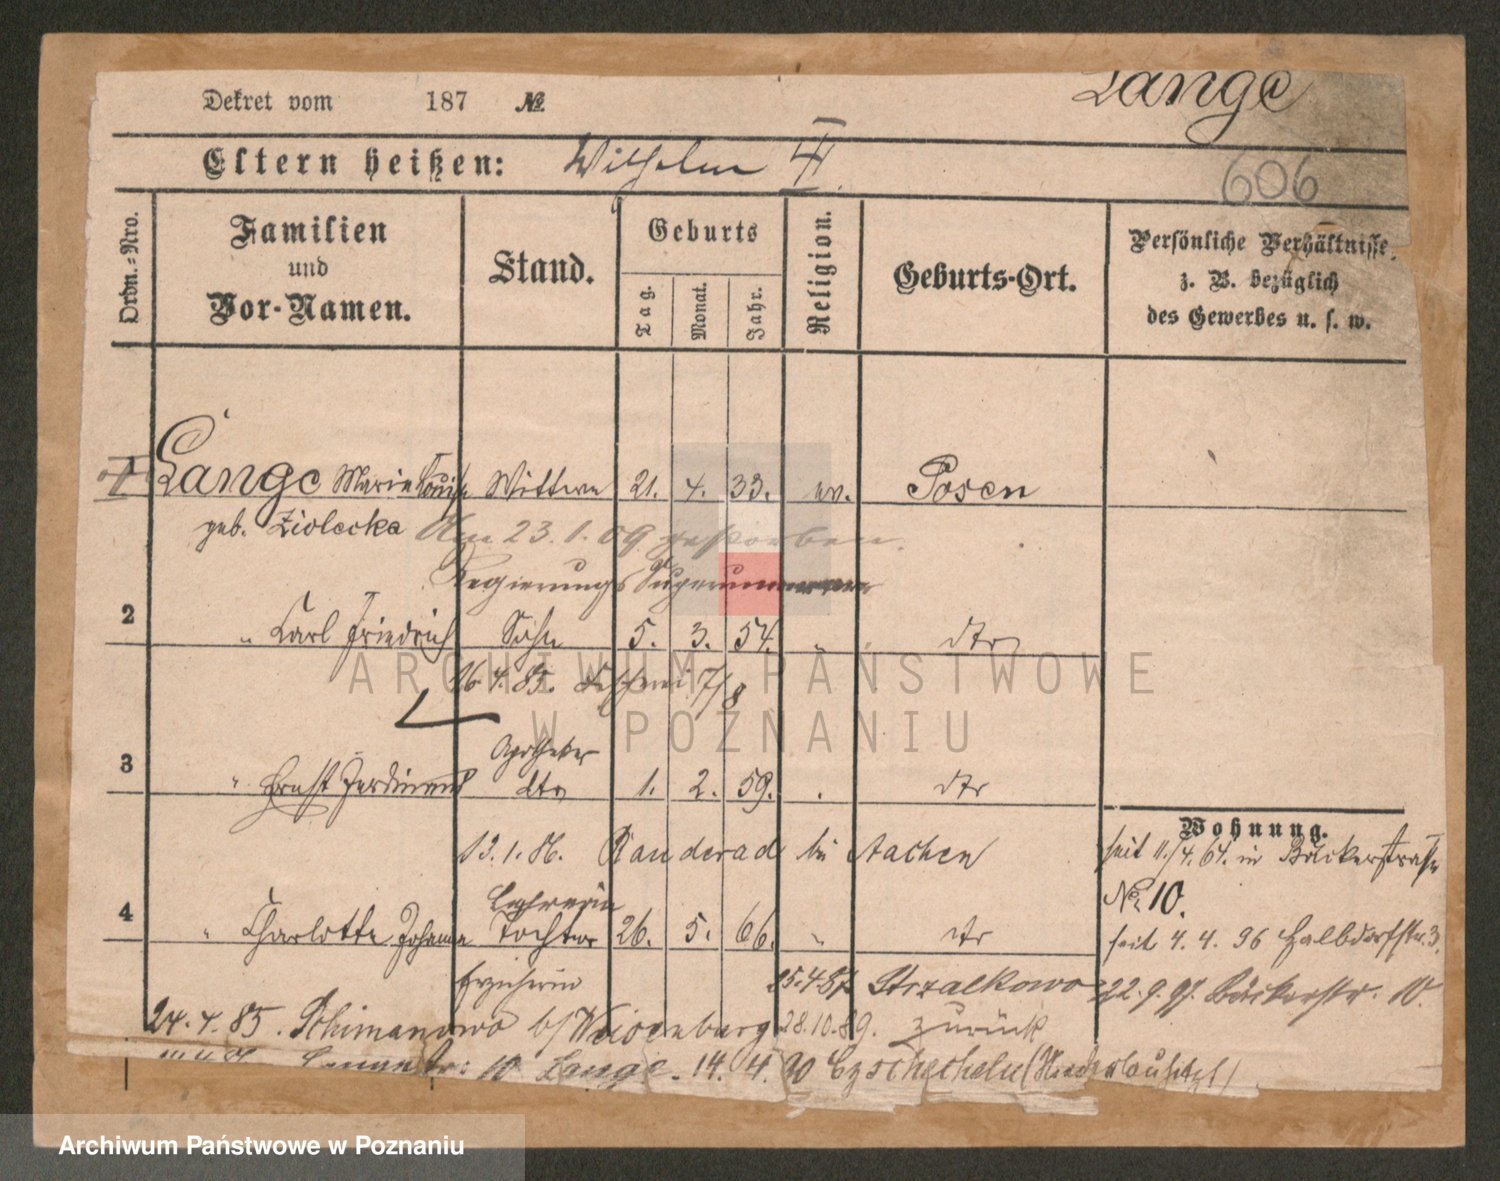 Lange
Dekret vom 187 №
Eltern heißen: Wilhelm III
606
Ordn.-Nro.
Familien
und
Vor-Namen.
Stand.
Geburts
Tag.
Monat.
Jahr.
Religion.
Geburts-Ort.
Persönliche Verhältnisse,
z. B. bezüglich
des Gewerbes u. s. w.
1 Lange Marie Louise Wittwe 21. 4. 33. ev. Posen
geb. Ziolecka Am 23.1.09 gestorben.
Regierungs
2 " Carl Friedrich Sohn 5. 3. 54. " dto
16.4.85. 7/8
Apotheker
3 " Ernst Ferdinand dto 1. 2. 59. " dto
13.1.86. Randerad bei Aachen
Lehrerin
4 " Charlotte Johanna Tochter 26. 5. 66. " dto
Erzieherin 25.4.87 Strzalkowo
24.4.85. Schimanowo b/ 28.10.89. zurück
Lange. 14. 4. 90
Wohnung.
seit 11/4.61. in Bäckerstraße
No 10.
seit 4. 4. 96 Halbdorfstr. 3.
22.9.97. Bäckerstr. 10.
ARCHIWUM PAŃSTWOWE
W POZNANIU
Archiwum Państwowe w Poznaniu